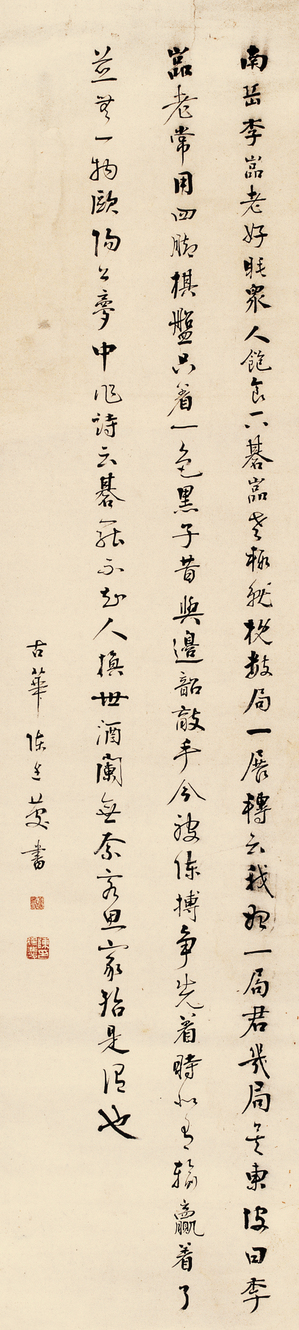 南岳李嵓老好睡衆人飽食下碁嵓老輒就枕數局一展轉云我始一局君幾局矣東坡曰李
嵓老常用四脚棋盤只着一色黒子昔與邊韶敵手今被陳摶争先着時似有輸贏着了
並無一物歐陽公夢中作詩云碁罷不知人換世酒闌無奈客思家殆是謂也
古華陳廷慶書